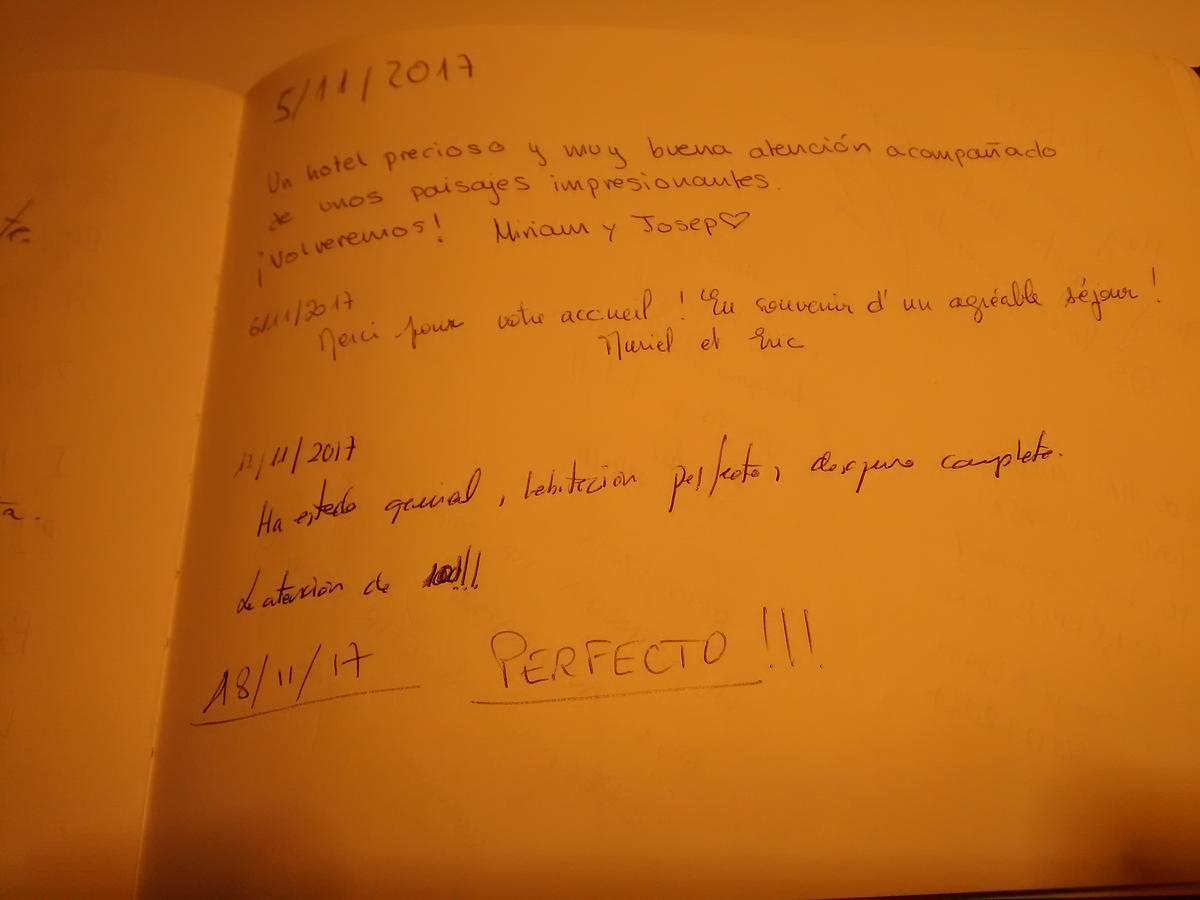 5/11/2017
Un hotel precioso y muy buena atención acompañado
de unos paisajes impresionantes.
¡Volveremos! Miriam y Josep♡
6/11/2017
Merci pour votre accueil ! En souvenir d'un agréable séjour !
Muriel et Eric
/11/2017
Ha estado genial, habitación perfecta, desayuno completo.
La atención de 100!!!
18/11/17 PERFECTO!!!